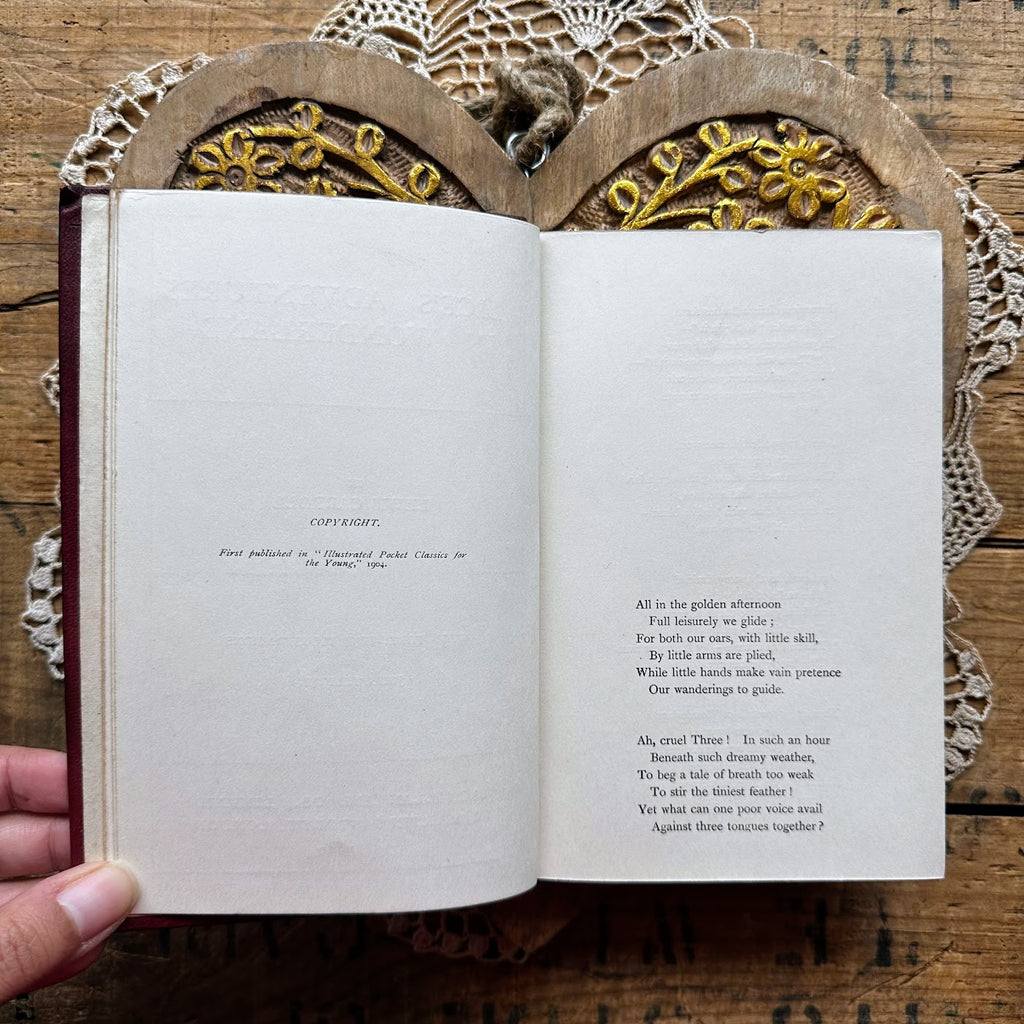 COPYRIGHT.
First published in "Illustrated Pocket Classics for
the Young," 1904.
All in the golden afternoon
Full leisurely we glide ;
For both our oars, with little skill,
By little arms are plied,
While little hands make vain pretence
Our wanderings to guide.
Ah, cruel Three ! In such an hour
Beneath such dreamy weather,
To beg a tale of breath too weak
To stir the tiniest feather !
Yet what can one poor voice avail
Against three tongues together ?